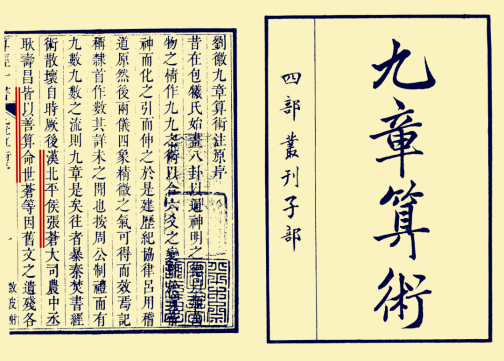 九章算術
四部叢刊子部
劉徽九章算術注原序
昔在包犧氏始畫八卦以通神明之德以類萬
物之情作九九之術以合六爻之變
神而化之引而伸之於是建歷紀協律呂用稽
道原然後兩儀四象精微之氣可得而效焉記
稱隸首作數其詳未之聞也按周公制禮而有
九數九數之流則九章是矣往者暴秦焚書經
術散壞自時厥後漢北平侯張蒼大司農中丞
耿壽昌皆以善算命世蒼等因舊文之遺殘各